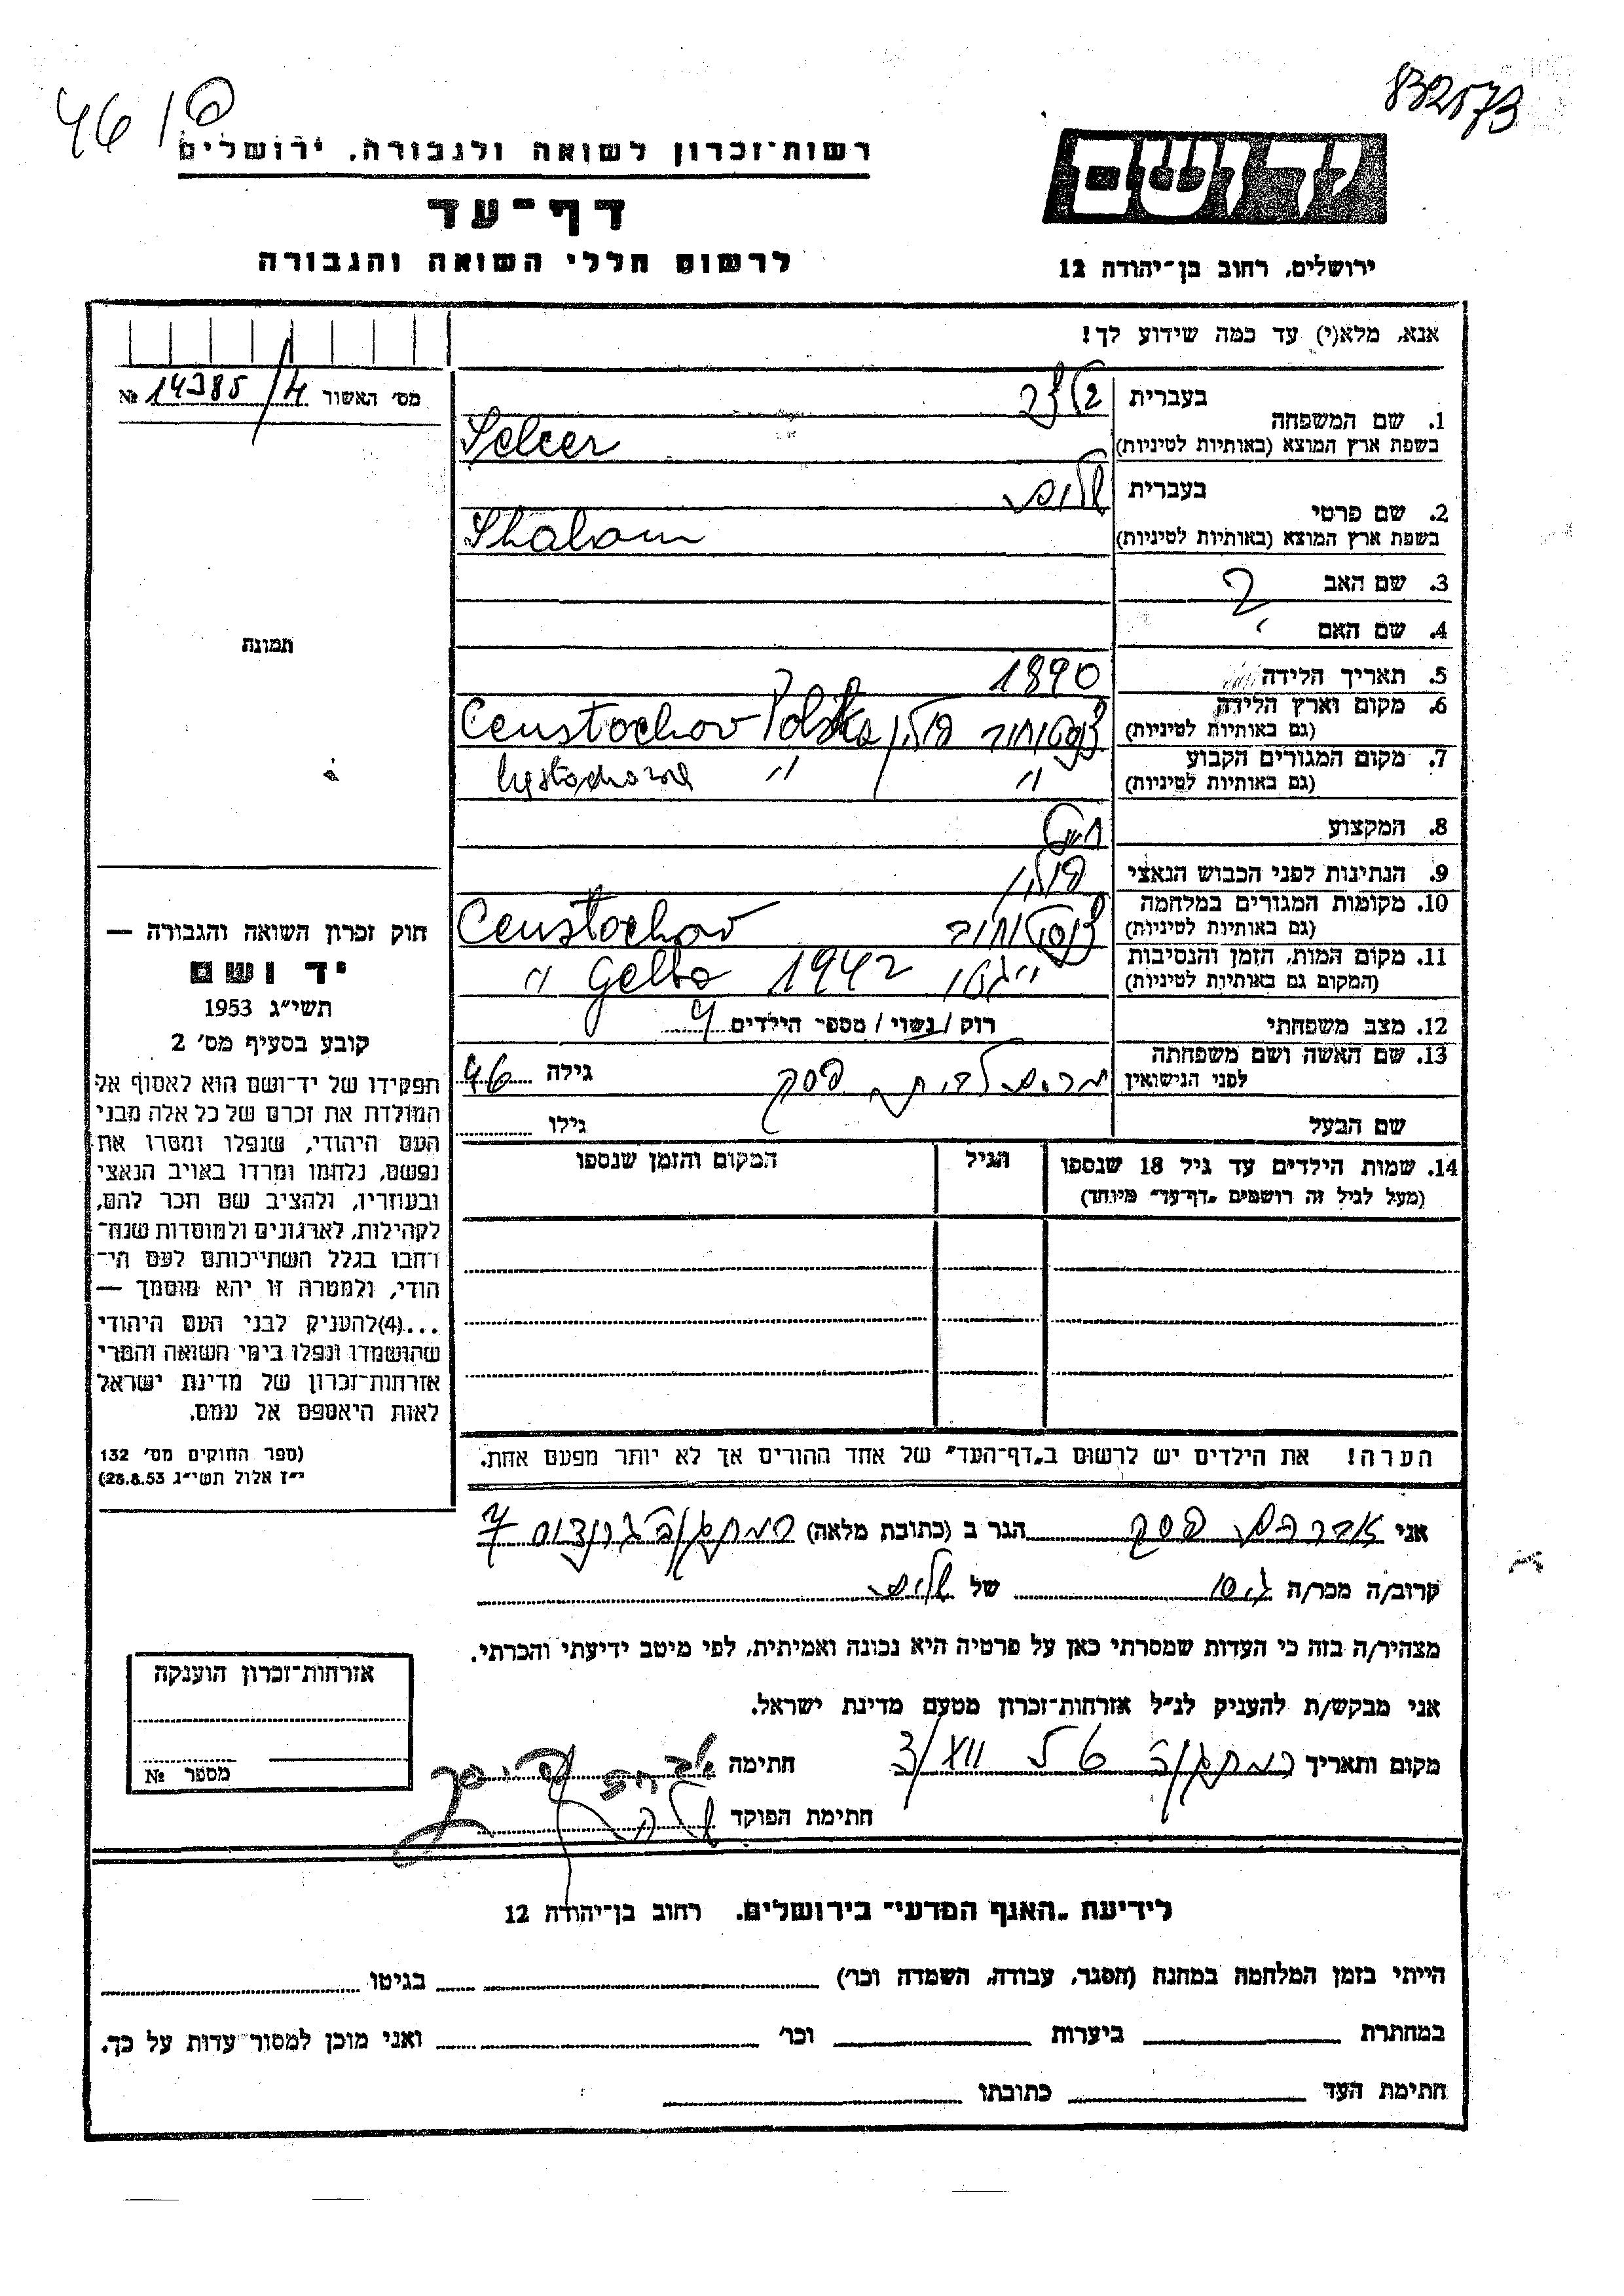 832573
46 / פ
רשות־זכרון לשואה ולגבורה, ירושלים
דף־עד
לרשום חללי השואה והגבורה
ידושם
ירושלים, רחוב בן־יהודה 12
אנא, מלא(י) עד כמה שידוע לך!
מס׳ האשור 14385/4 №
1. שם המשפחה
בעברית
בשפת ארץ המוצא (באותיות לטיניות) Selcer
2. שם פרטי
בעברית שלום
בשפת ארץ המוצא (באותיות לטיניות) Shalom
3. שם האב ?
4. שם האם
5. תאריך הלידה 1890
6. מקום וארץ הלידה צנסטוחוב פולין Censtochov Polska
(גם באותיות לטיניות)
7. מקום המגורים הקבוע " "
(גם באותיות לטיניות)
8. המקצוע
9. הנתינות לפני הכבוש הנאצי פולין
10. מקומות המגורים במלחמה צנסטוחוב Censtochov
(גם באותיות לטיניות)
11. מקום המות, הזמן והנסיבות " גטו 1942 "
(המקום גם באותיות לטיניות)
12. מצב משפחתי רוק / נשוי / מספר הילדים 4
13. שם האשה ושם משפחתה
לפני הנישואין מרים לבית פסק גילה 46
שם הבעל גילו
14. שמות הילדים עד גיל 18 שנספו הגיל המקום והזמן שנספו
(מעל לגיל זה רושמים „דף־עד״ מיוחד)
תמונה
חוק זכרון השואה והגבורה —
יד ושם
תשי״ג 1953
קובע בסעיף מס׳ 2
תפקידו של יד־ושם הוא לאסוף אל
המולדת את זכרם של כל אלה מבני
העם היהודי, שנפלו ומסרו את
נפשם, נלחמו ומרדו באויב הנאצי
ובעוזריו, ולהציב שם וזכר להם,
לקהילות, לארגונים ולמוסדות שנח־
רבו בגלל השתייכותם לעם הי־
הודי, ולמטרה זו יהא מוסמך —
...(4) להעניק לבני העם היהודי
שהושמדו ונפלו בימי השואה והמרי
אזרחות־זכרון של מדינת ישראל
לאות היאספם אל עמם.
(ספר החוקים מס׳ 132
י״ז אלול תשי״ג 28.8.53)
הערה! את הילדים יש לרשום ב„דף־העד״ של אחד ההורים אך לא יותר מפעם אחת.
אני אברהם פסק הגר ב (כתובת מלאה)
קרוב/ה מכר/ה גיסו של שלום
מצהיר/ה בזה כי העדות שמסרתי כאן על פרטיה היא נכונה ואמיתית, לפי מיטב ידיעתי והכרתי.
אני מבקש/ת להעניק לנ״ל אזרחות־זכרון מטעם מדינת ישראל.
מקום ותאריך חתימה
חתימת הפוקד
אזרחות־זכרון הוענקה
מספר №
לידיעת „האגף המדעי״ בירושלים. רחוב בן־יהודה 12
הייתי בזמן המלחמה במחנה (הסגר, עבודה, השמדה וכו׳) בגיטו
במחתרת ביערות וכו׳ ואני מוכן למסור עדות על כך.
חתימת העד כתובתו